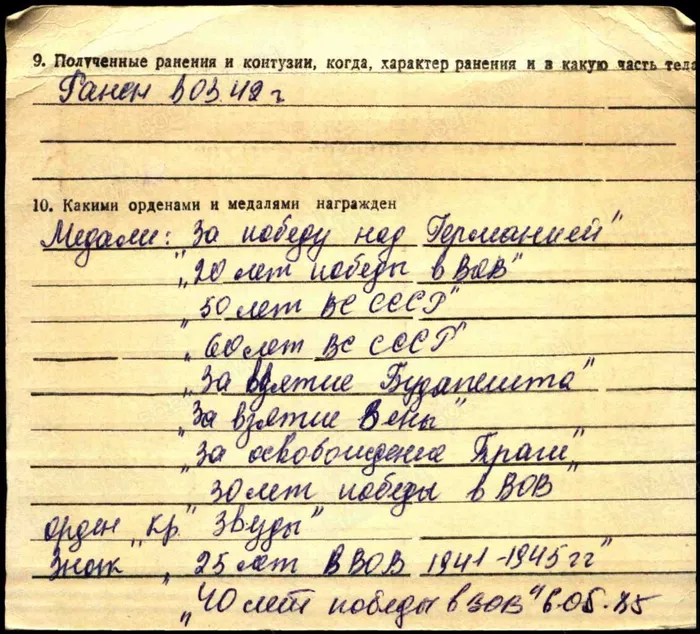 9. Полученные ранения и контузии, когда, характер ранения и в какую часть тела
Ранен 3 03 42 г
10. Какими орденами и медалями награжден
Медали: "За победу над Германией"
"20 лет победы в ВОВ"
"50 лет ВС СССР"
"60 лет ВС СССР"
"За взятие Будапешта"
"За взятие Вены"
"За освобождение Праги"
"30 лет победы в ВОВ
орден "Кр" Звуды"
Знак "25 лет В ВОВ 1941-1945 гг"
"40 лет победы в ВОВ"